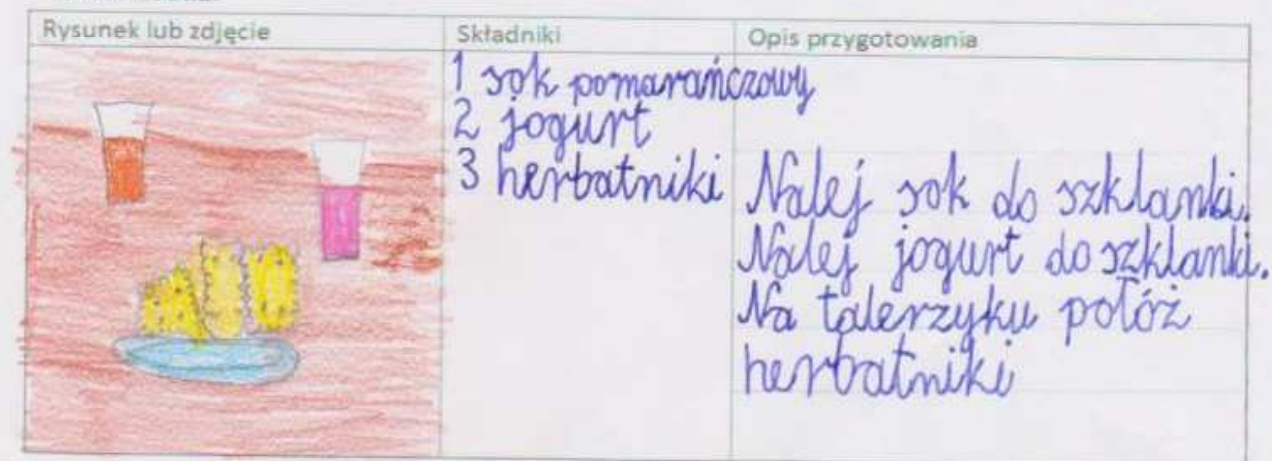 Rysunek lub zdjęcie
Składniki
Opis przygotowania
1 sok pomarańczowy
2 jogurt
3 herbatniki
Nalej sok do szklanki.
Nalej jogurt do szklanki.
Na talerzyku połóż
herbatniki